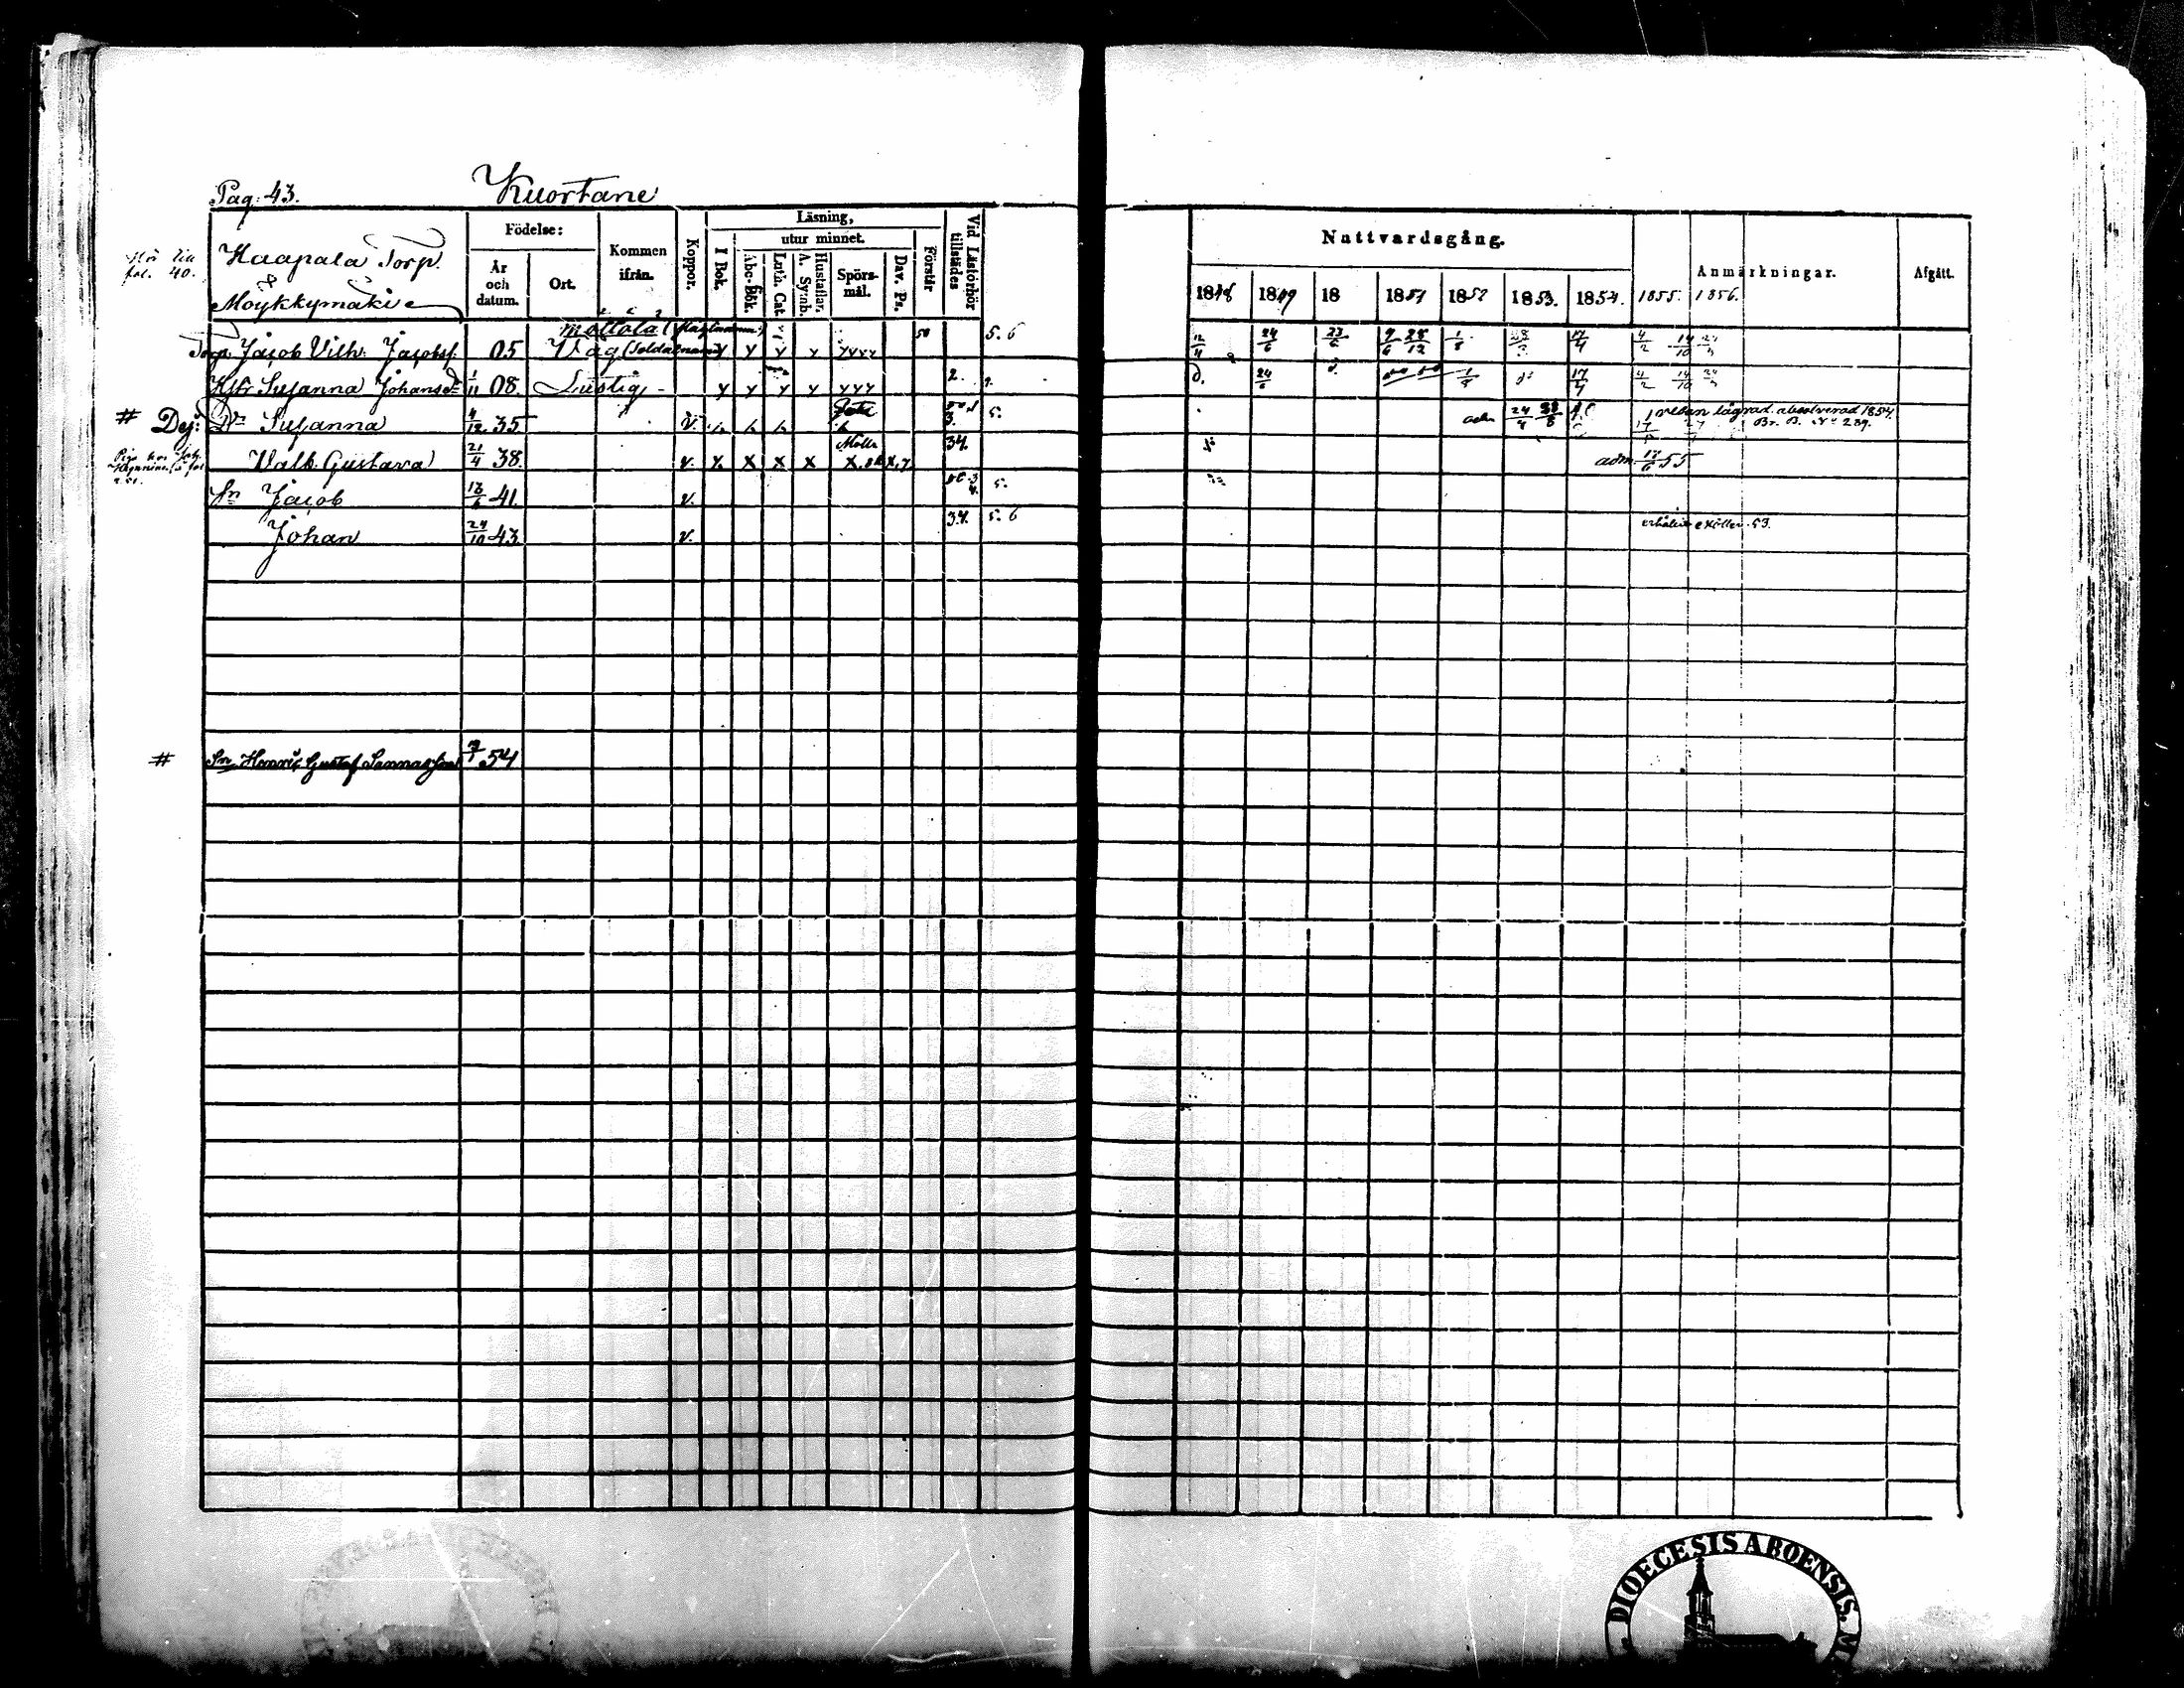 Pag. 43. Kuortane
Hör till fol. 40.
Haapala Torp.
&
Moykkymäki
Födelse:
År och datum.
Ort.
Kommen ifrån.
Koppor.
Läsning,
utur minnet.
I Bok.
Abc-Bok.
Luth. Cat
Hustaflar. A. Symb.
Spörs-mål.
Dav. Ps.
Förstår
Vid Läsförhör tillstädes
Nattvardsgång.
1848 1849 18 1851 1852 1853. 1854. 1855. 1856.
Anmärkningar.
Afgått.
Torp. Jacob Vilh. Jacobsf. 05 y y y y yyyy 50 5. 6 12/4 24/6 23/6 9/6 28/12 1/8 17/4 4/2 14/10
Hstr Susanna Johansdr 1/11 08. Lustig - y y y y yyy 2. d. 24/6 17/4 4/2 14/10
# Dej: Dr Susanna 4/12 35 v. h h h h 3. 5. adm 24/4 lägrad. absolverad 1854. Br. B. No 289.
Valb. Gustava 21/4 38. v. x x x x x 34. adm. 17/6 55
Sn Jacob 13/6 41. v. 5.
Johan 24/10 43 v. 34. 5. 6 53.
# Sn Henric Gustaf 54
DIOECESIS ABOENSIS.